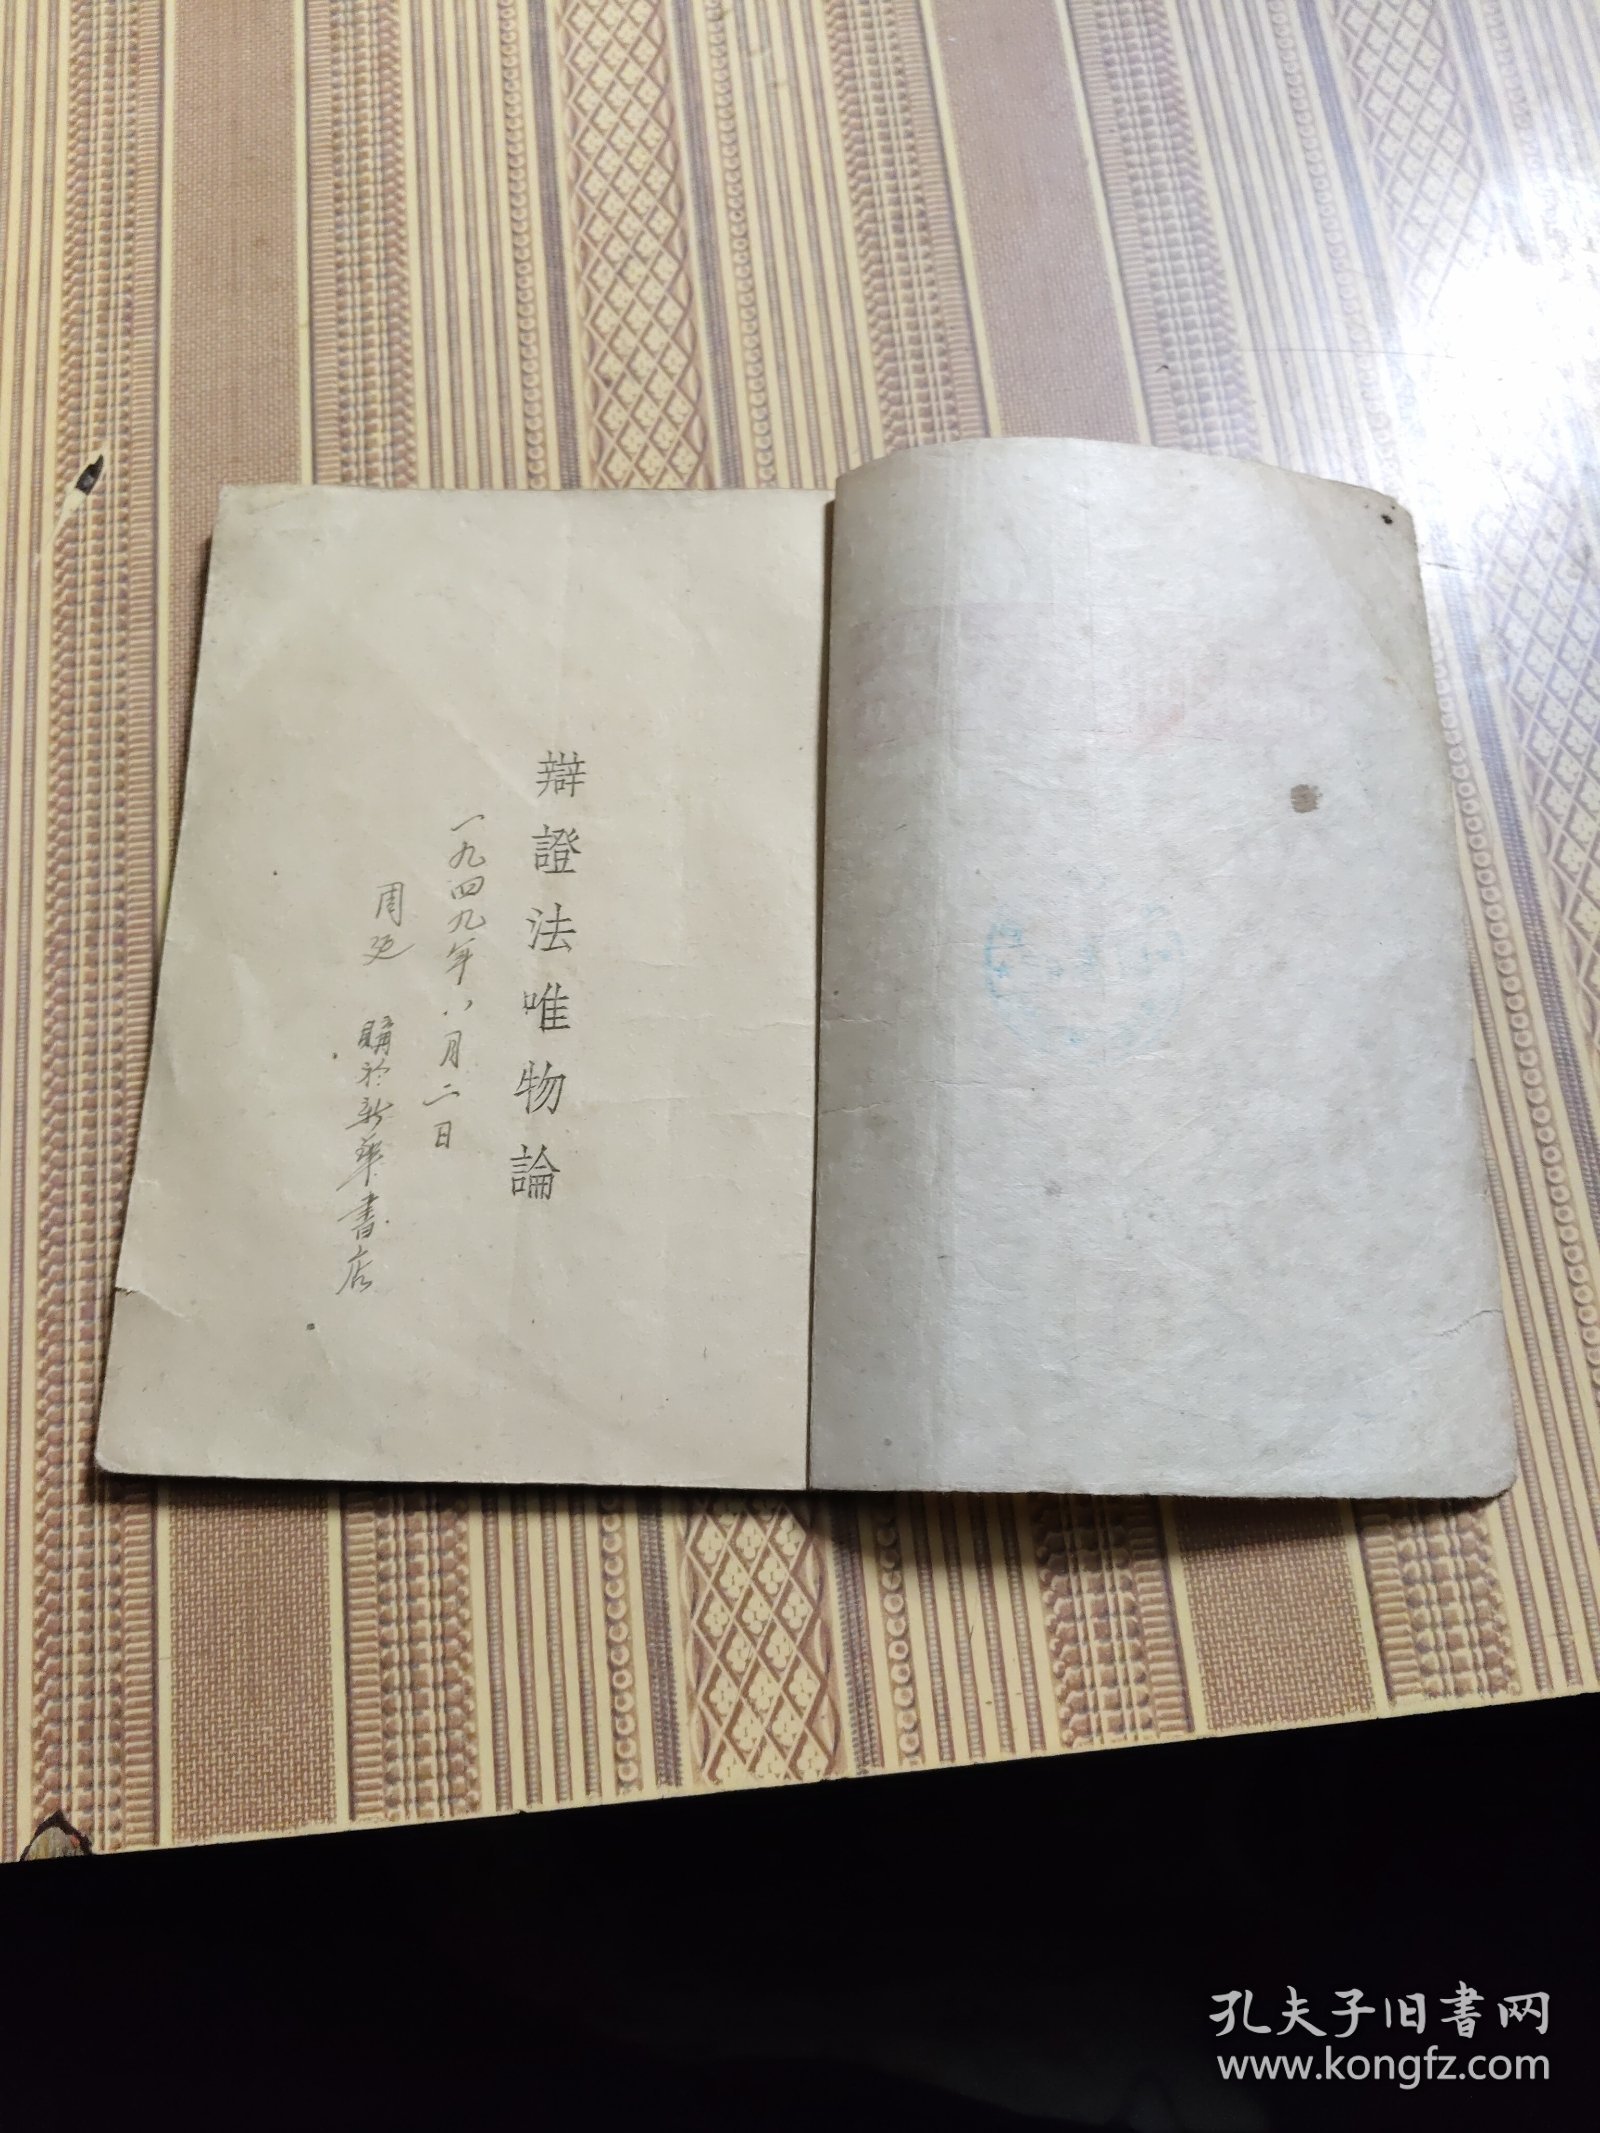 辯證法唯物論
一九四九年八月二日
周延 購於新華書店
孔夫子旧書网
www.kongfz.com